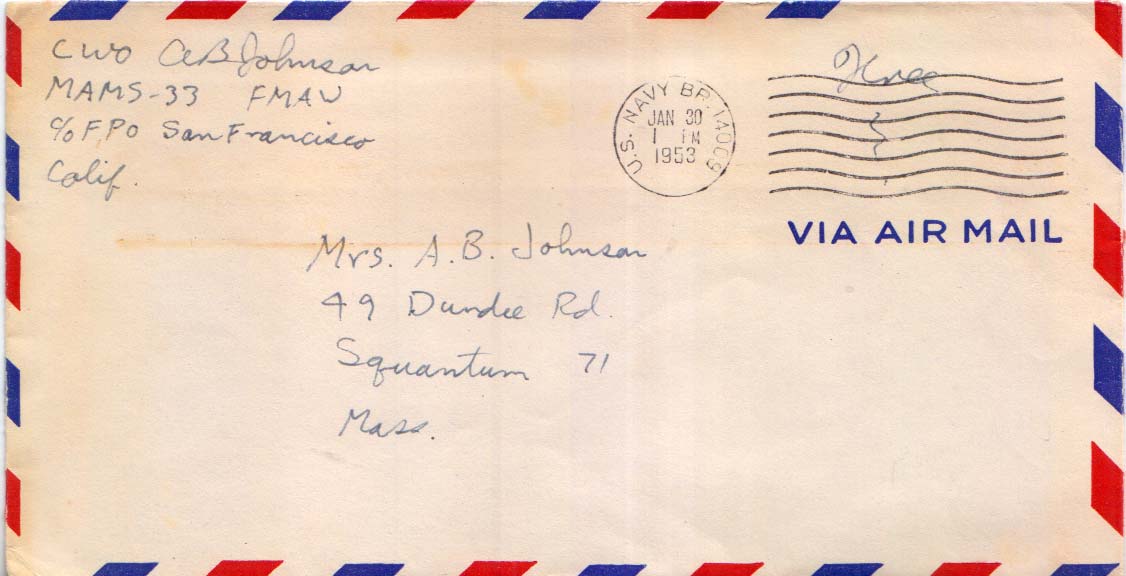 CWO AB Johnson
MAMS-33 FMAW
c/o F.P.O San Francisco
Calif.
Free
U.S. NAVY BR. 14009
JAN 30
1 PM
1953
VIA AIR MAIL
Mrs. A.B. Johnson
49 Dundee Rd.
Squantum 71
Mass.